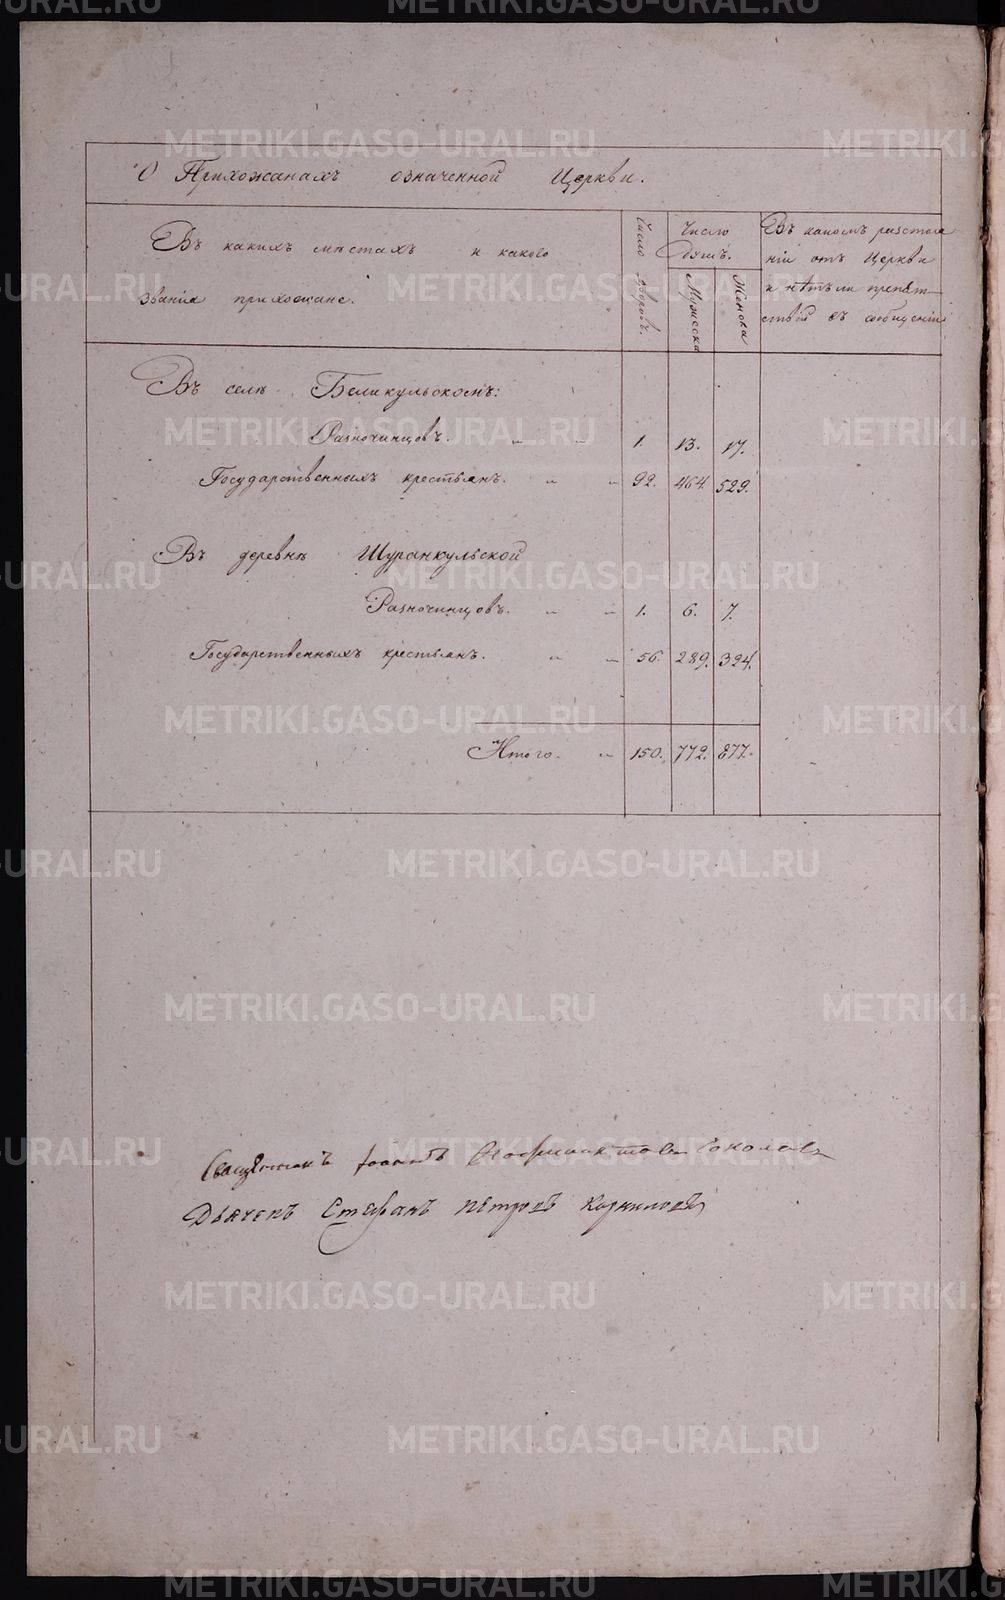 О Прихожанахъ означенной Церкви.
Въ какихъ мѣстахъ и какого
званія прихожане.
Число дворовъ.
Число
душъ.
Мужеска
Женска
Въ какомъ разстоя
ніи отъ Церкви
и нѣтъ ли препят-
ствій въ сообщеніи
Въ селѣ Беликульскомъ:
Разночинцовъ. 1. 13. 17.
Государственныхъ крестьянъ. 92. 464. 529.
Въ деревнѣ Шуранкульской
Разночинцовъ. 1. 6. 7.
Государственныхъ крестьянъ. 56. 289. 324.
Итого. 150. 772. 877.
Священникъ Іоаннъ Соколовъ
Дьячекъ Стефанъ Петровъ Корниловъ
METRIKI.GASO-URAL.RU